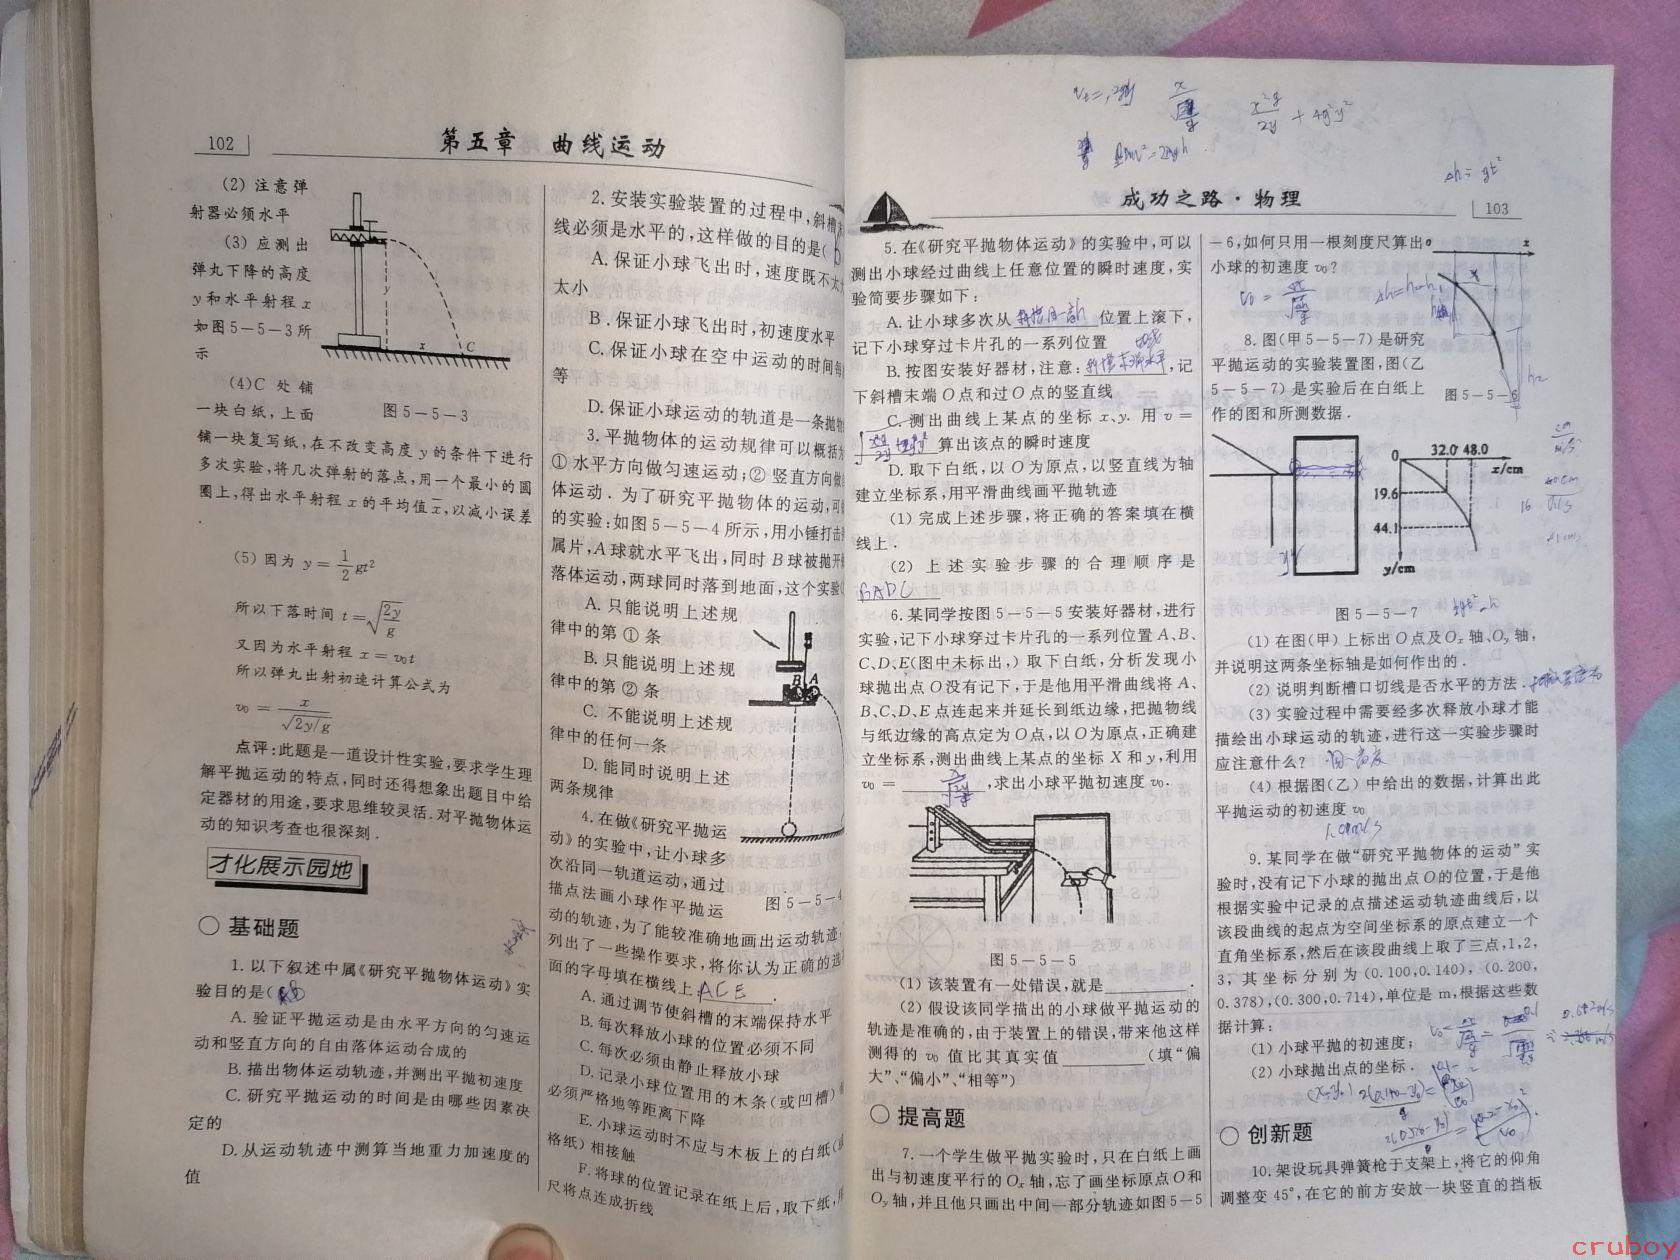 102
第五章 曲线运动
(2) 注意弹
射器必须水平
(3) 应测出
弹丸下降的高度
y和水平射程 x
如图5－5－3所
示
y
x
C
(4)C 处铺
一块白纸,上面
图5－5－3
铺一块复写纸,在不改变高度 y 的条件下进行
多次实验,将几次弹射的落点,用一个最小的圆
圈上,得出水平射程 x 的平均值 x̄,以减小误差
.
(5) 因为 y = 1/2 gt²
所以下落时间 t = √(2y/g)
又因为水平射程 x = v₀t
所以弹丸出射初速计算公式为
v₀ = x/√(2y/g)
点评:此题是一道设计性实验,要求学生理
解平抛运动的特点,同时还得想象出题目中给
定器材的用途,要求思维较灵活.对平抛物体运
动的知识考查也很深刻.
才化展示园地
○ 基础题
1. 以下叙述中属《研究平抛物体运动》实
验目的是(
A. 验证平抛运动是由水平方向的匀速运
动和竖直方向的自由落体运动合成的
B. 描出物体运动轨迹,并测出平抛初速度
C. 研究平抛运动的时间是由哪些因素决
定的
D. 从运动轨迹中测算当地重力加速度的
值
2. 安装实验装置的过程中,斜槽
线必须是水平的,这样做的目的是(
A. 保证小球飞出时,速度既不太
太小
B. 保证小球飞出时,初速度水平
C. 保证小球在空中运动的时间每
等
D. 保证小球运动的轨道是一条抛物
3. 平抛物体的运动规律可以概括为
① 水平方向做匀速运动;② 竖直方向做
体运动.为了研究平抛物体的运动,可
的实验:如图5－5－4所示,用小锤打击
属片,A球就水平飞出,同时B球被抛开
落体运动,两球同时落到地面,这个实验
A. 只能说明上述规
律中的第 ① 条
B. 只能说明上述规
律中的第 ② 条
C. 不能说明上述规
律中的任何一条
D. 能同时说明上述
两条规律
B A
4. 在做《研究平抛运
动》的实验中,让小球多
次沿同一轨道运动,通过
描点法画小球作平抛运
图5－5－4
动的轨迹,为了能较准确地画出运动轨迹,
列出了一些操作要求,将你认为正确的选
面的字母填在横线上 ACE .
A. 通过调节使斜槽的末端保持水平
B. 每次释放小球的位置必须不同
C. 每次必须由静止释放小球
D. 记录小球位置用的木条(或凹槽)
必须严格地等距离下降
E. 小球运动时不应与木板上的白纸(
格纸)相接触
F. 将球的位置记录在纸上后,取下纸,
尺将点连成折线
x²g/2y + 4g²y²
Δh = gt²
成功之路·物理
103
5. 在《研究平抛物体运动》的实验中,可以
测出小球经过曲线上任意位置的瞬时速度,实
验简要步骤如下:
A. 让小球多次从 位置上滚下,
记下小球穿过卡片孔的一系列位置
B. 按图安装好器材,注意: 斜槽末端水平 ,记
下斜槽末端 O点和过 O点的竖直线
C. 测出曲线上某点的坐标 x、y. 用 v =
算出该点的瞬时速度
D. 取下白纸,以 O为原点,以竖直线为轴
建立坐标系,用平滑曲线画平抛轨迹
(1) 完成上述步骤,将正确的答案填在横
线上.
(2) 上述实验步骤的合理顺序是
BADC
6. 某同学按图5－5－5安装好器材,进行
实验,记下小球穿过卡片孔的一系列位置 A、B、
C、D、E(图中未标出,)取下白纸,分析发现小
球抛出点 O没有记下,于是他用平滑曲线将 A、
B、C、D、E 点连起来并延长到纸边缘,把抛物线
与纸边缘的高点定为 O点,以 O为原点,正确建
立坐标系,测出曲线上某点的坐标 X 和 y,利用
v₀ = ,求出小球平抛初速度 v₀.
图5－5－5
(1) 该装置有一处错误,就是 .
(2) 假设该同学描出的小球做平抛运动的
轨迹是准确的,由于装置上的错误,带来他这样
测得的 v₀ 值比其真实值 (填“偏
大”、“偏小”、“相等”)
○ 提高题
7. 一个学生做平抛实验时,只在白纸上画
出与初速度平行的 Ox 轴,忘了画坐标原点 O和
Oy 轴,并且他只画出中间一部分轨迹如图5－5
－6,如何只用一根刻度尺算出
小球的初速度 v₀?
o x
h₂
图5－5－6
8. 图(甲5－5－7)是研究
平抛运动的实验装置图,图(乙
5－5－7)是实验后在白纸上
作的图和所测数据.
0 32.0 48.0
x/cm
19.6
44.1
y/cm
图5－5－7
(1) 在图(甲)上标出 O点及 Ox 轴、Oy 轴,
并说明这两条坐标轴是如何作出的.
(2) 说明判断槽口切线是否水平的方法.
(3) 实验过程中需要经多次释放小球才能
描绘出小球运动的轨迹,进行这一实验步骤时
应注意什么? 同一高度
(4) 根据图(乙)中给出的数据,计算出此
平抛运动的初速度 v₀
9. 某同学在做“研究平抛物体的运动”实
验时,没有记下小球的抛出点 O的位置,于是他
根据实验中记录的点描述运动轨迹曲线后,以
该段曲线的起点为空间坐标系的原点建立一个
直角坐标系,然后在该段曲线上取了三点,1,2,
3,其坐标分别为(0.100,0.140),(0.200,
0.378),(0.300,0.714),单位是 m,根据这些数
据计算:
(1) 小球平抛的初速度;
(2) 小球抛出点的坐标.
○ 创新题
10. 架设玩具弹簧枪于支架上,将它的仰角
调整变 45°,在它的前方安放一块竖直的挡板
cruboy